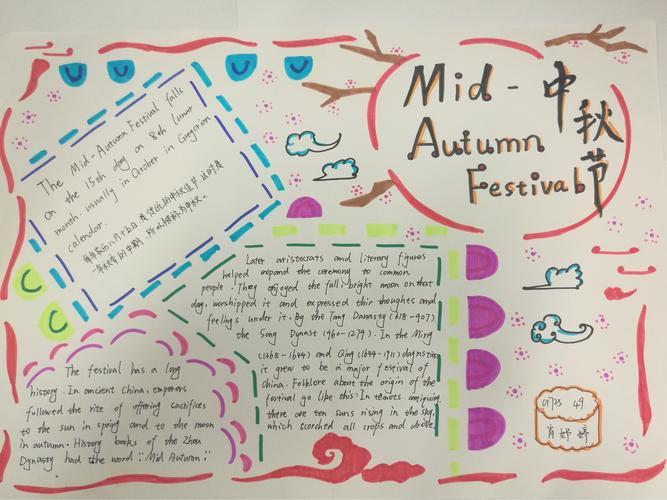 Mid-
Autumn
Festival
中秋节
The Mid-Autumn Festival falls
on the 15th day on 8th lunar
month. usually in October in Gregorian
calendar.
每年农历八月十五日，是传统的中秋佳节，这时是
一年秋季的中期，所以被称为中秋。
Later aristocrats and literary figures
helped expand the ceremony to common
people. They enjoyed the full, bright moon on that
day, worshipped it and expressed thir thoughts and
feelings under it. By the Tang Danasty (618-907).
the Song Dynast (960-1279). In the Ming
(1368-1644) and Qing (1644-1911)
it grew to be a major festival of
china. Folklore about the origin of the
festival go like this: In remote
there are ten suns rising in the sky,
which scorched all crops and
The festival has a long
history. In ancient China, emperors
followed the rite of offering sacrifices
to the sun in spring and to the moon
in autumn. History books of the Zhou
Dynasty had the word "Mid Autumn".
0723 49
肖妤婷